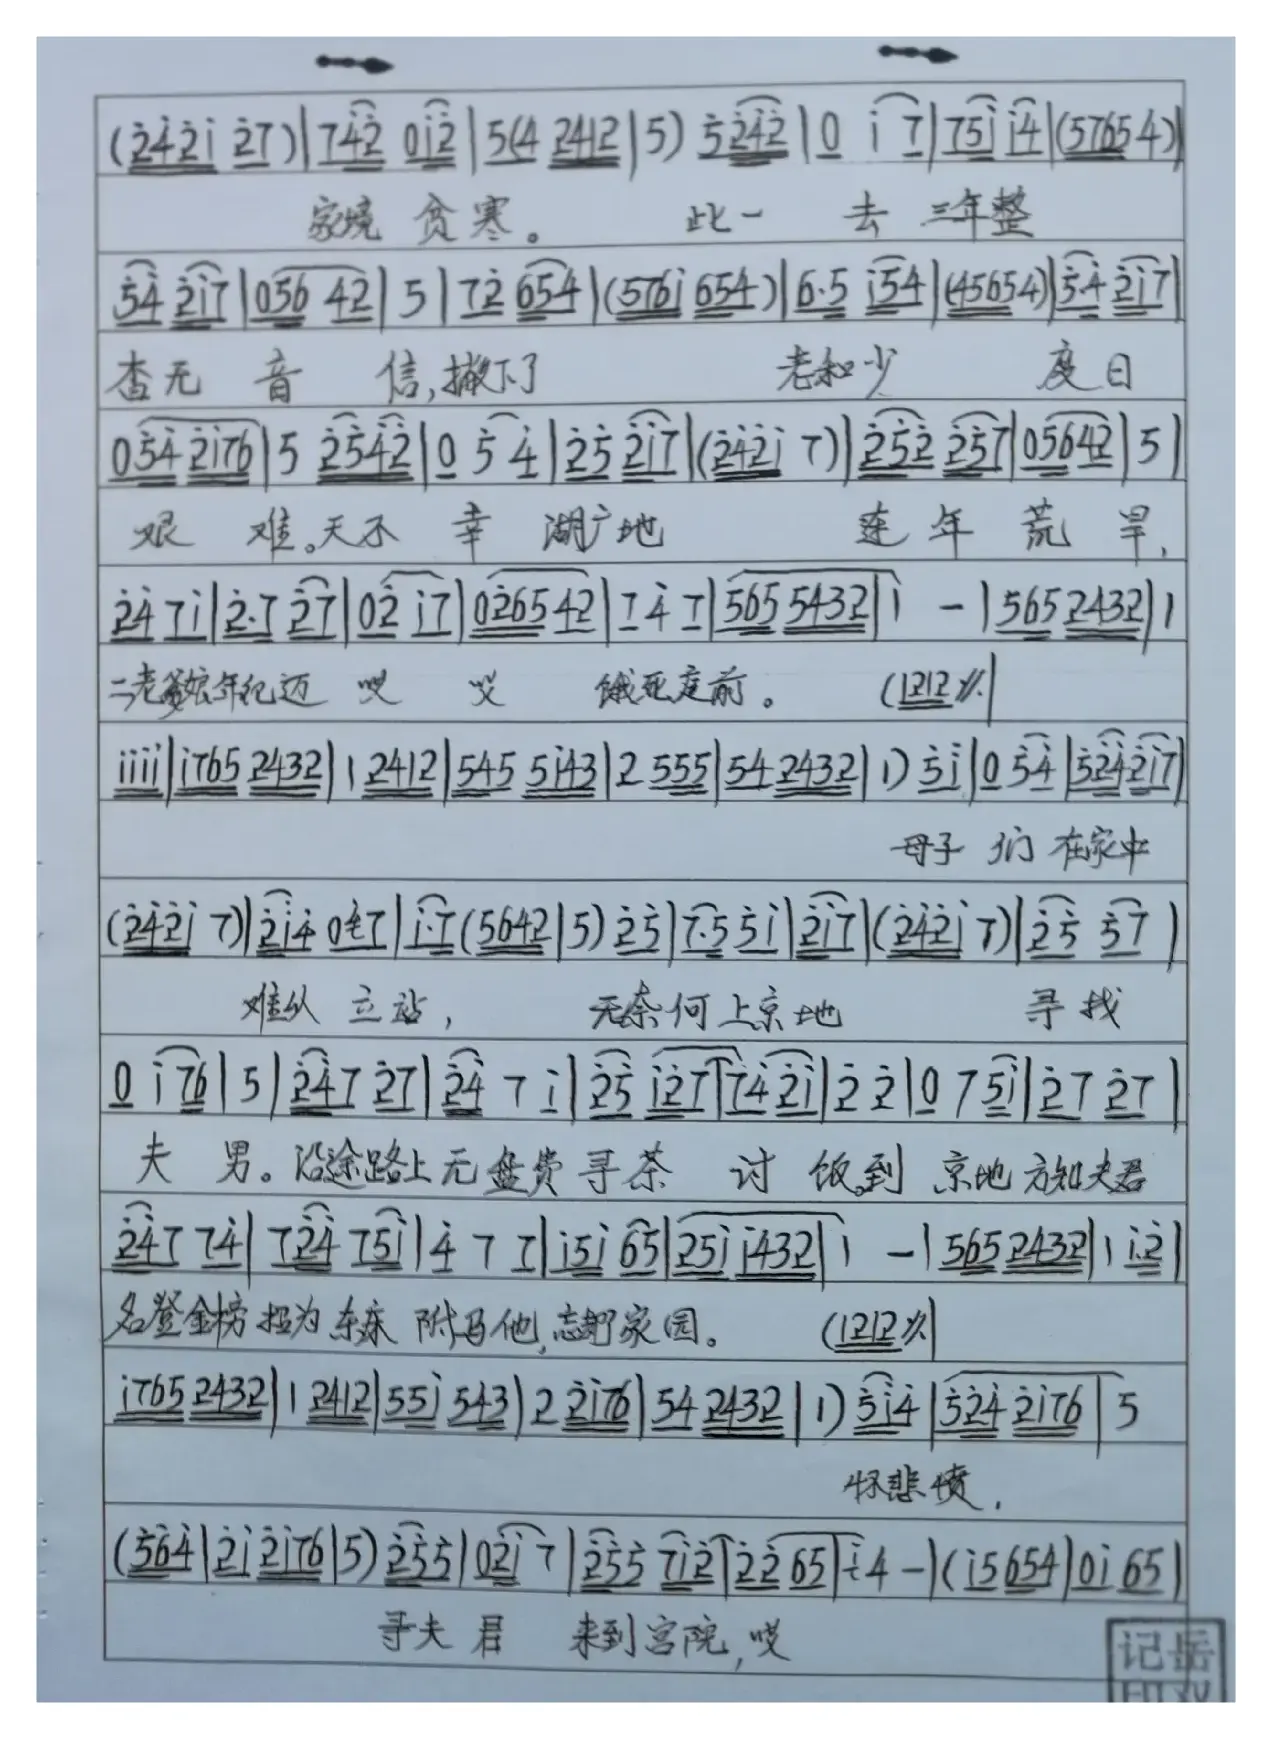 (2421 27)|742 012|5(4 2412|5) 5242|0 1 7|751 14|(5765 4)|
家境贫寒。 此一 去 三年整
54 217|056 42|5|72 654|(5761 654)|6·5 154|(45654)|5·4 217|
杳无 音 信,撇下了 老和少 度日
054 2176|5 2542|0 5 4|25 217|(2421 7)|252 257|05642|5|
艰 难。天不 幸 湖广地 连年荒旱,
24 71|2·7 27|02 17|0265 42|7 4 7|565 5432|1 -|565 2432|1
二老爹娘年纪迈 哎 哎 饿死庭前。 (1212 ٪|
1111|1765 2432|1 2412|545 5143|2 555|54 2432|1) 51|0 54|524 217|
母子 们 在家中
(2421 7)|214 047|1·7(5642|5) 25|7·5 51|217|(2421 7)|25 57|
难从 立站, 无奈何上京地 寻找
0 1 76|5|247 27|24 7 1|25 127|74 21|2 2|0 7 51|27 27|
夫 男。沿途路上无盘费寻茶 讨 饭,到 京地方知夫君
247 74|724 751|4 7 7|151 65|251 1432|1 -|565 2432|1 1·2|
名登金榜招为东床 附马他,忘却家园。 (1212 ٪|
1765 2432|1 2412|551 543|2 2176|54 2432|1) 514|524 2176|5
怀悲愤,
(564|21 2176|5) 255|021 7|255 712|22 65|14 -|(15 654|01 65|
寻夫 君 来到宫院,哎